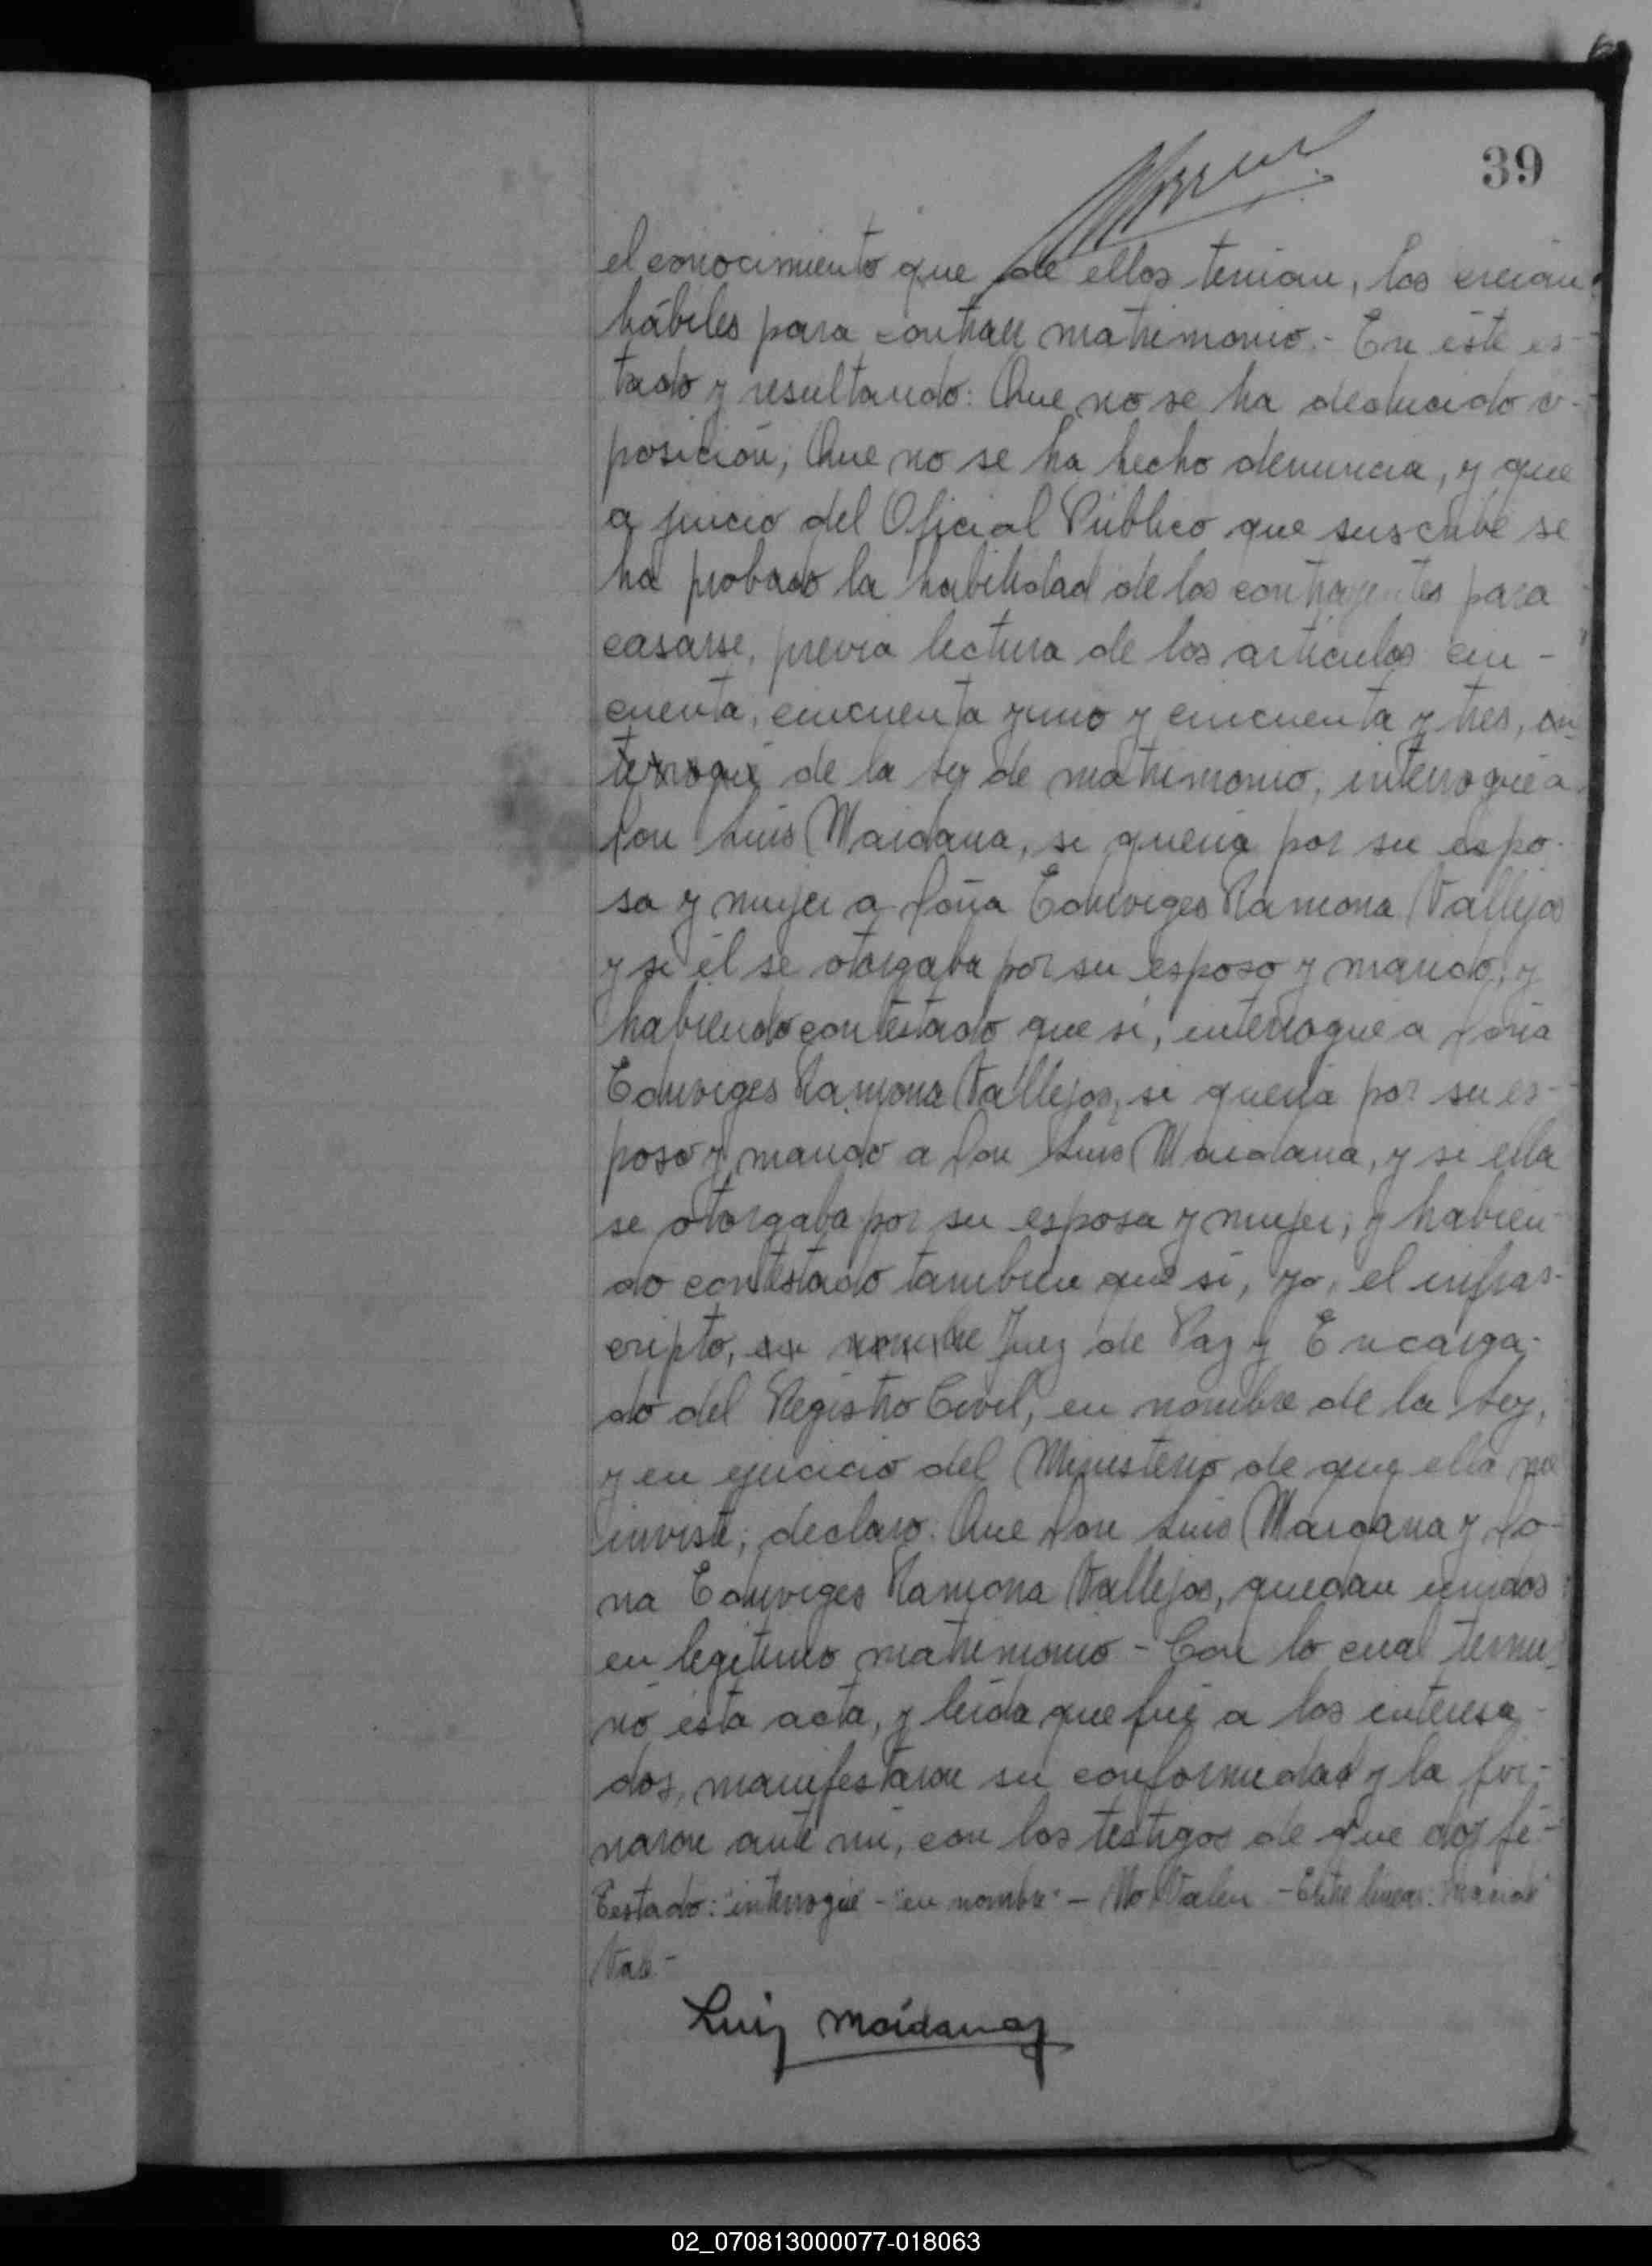 39
el conocimiento que de ellos tenian, los creian
hábiles para contraer matrimonio.- En éste es-
tado y resultando: Que no se ha deducido o-
posición; Que no se ha hecho denuncia, y que
a juicio del Oficial Público que suscribe se
ha probado la habilidad de los contrayentes para
casarse, previa lectura de los artículos cin-
cuenta, cincuenta y uno y cincuenta y tres, in-
terrogué de la Ley de matrimonio, interrogué a
Don Luis Maidana, si quería por su espo-
sa y mujer a Doña Eduviges Ramona Vallejos
y si él se otorgaba por su esposo y marido, y
habiendo contestado que sí, interrogue a Doña
Eduviges Ramona Vallejos, si quería por su es-
poso y marido a Don Luis Maidana, y si ella
se otorgaba por su esposa y mujer, y habien-
do contestado tambien que sí, yo, el infras-
cripto, en nombre Juez de Paz y Encarga-
do del Registro Civil, en nombre de la Ley,
y en ejercicio del Ministerio de que ella me
inviste; declaro: Que Don Luis Maidana y Do-
na Eduviges Ramona Vallejos, quedan unidos
en legitimo matrimonio - Con lo cual termi-
nó ésta acta, y leída que fué a los interesa-
dos, manifestaron su conformidad y la fir-
maron ante mi, con los testigos de que doy fé-
Testado: "interrogué" - "en nombre" - No Valen - Entre lineas: "marido"
Vale-
Luis Maidana
02_070813000077-018063